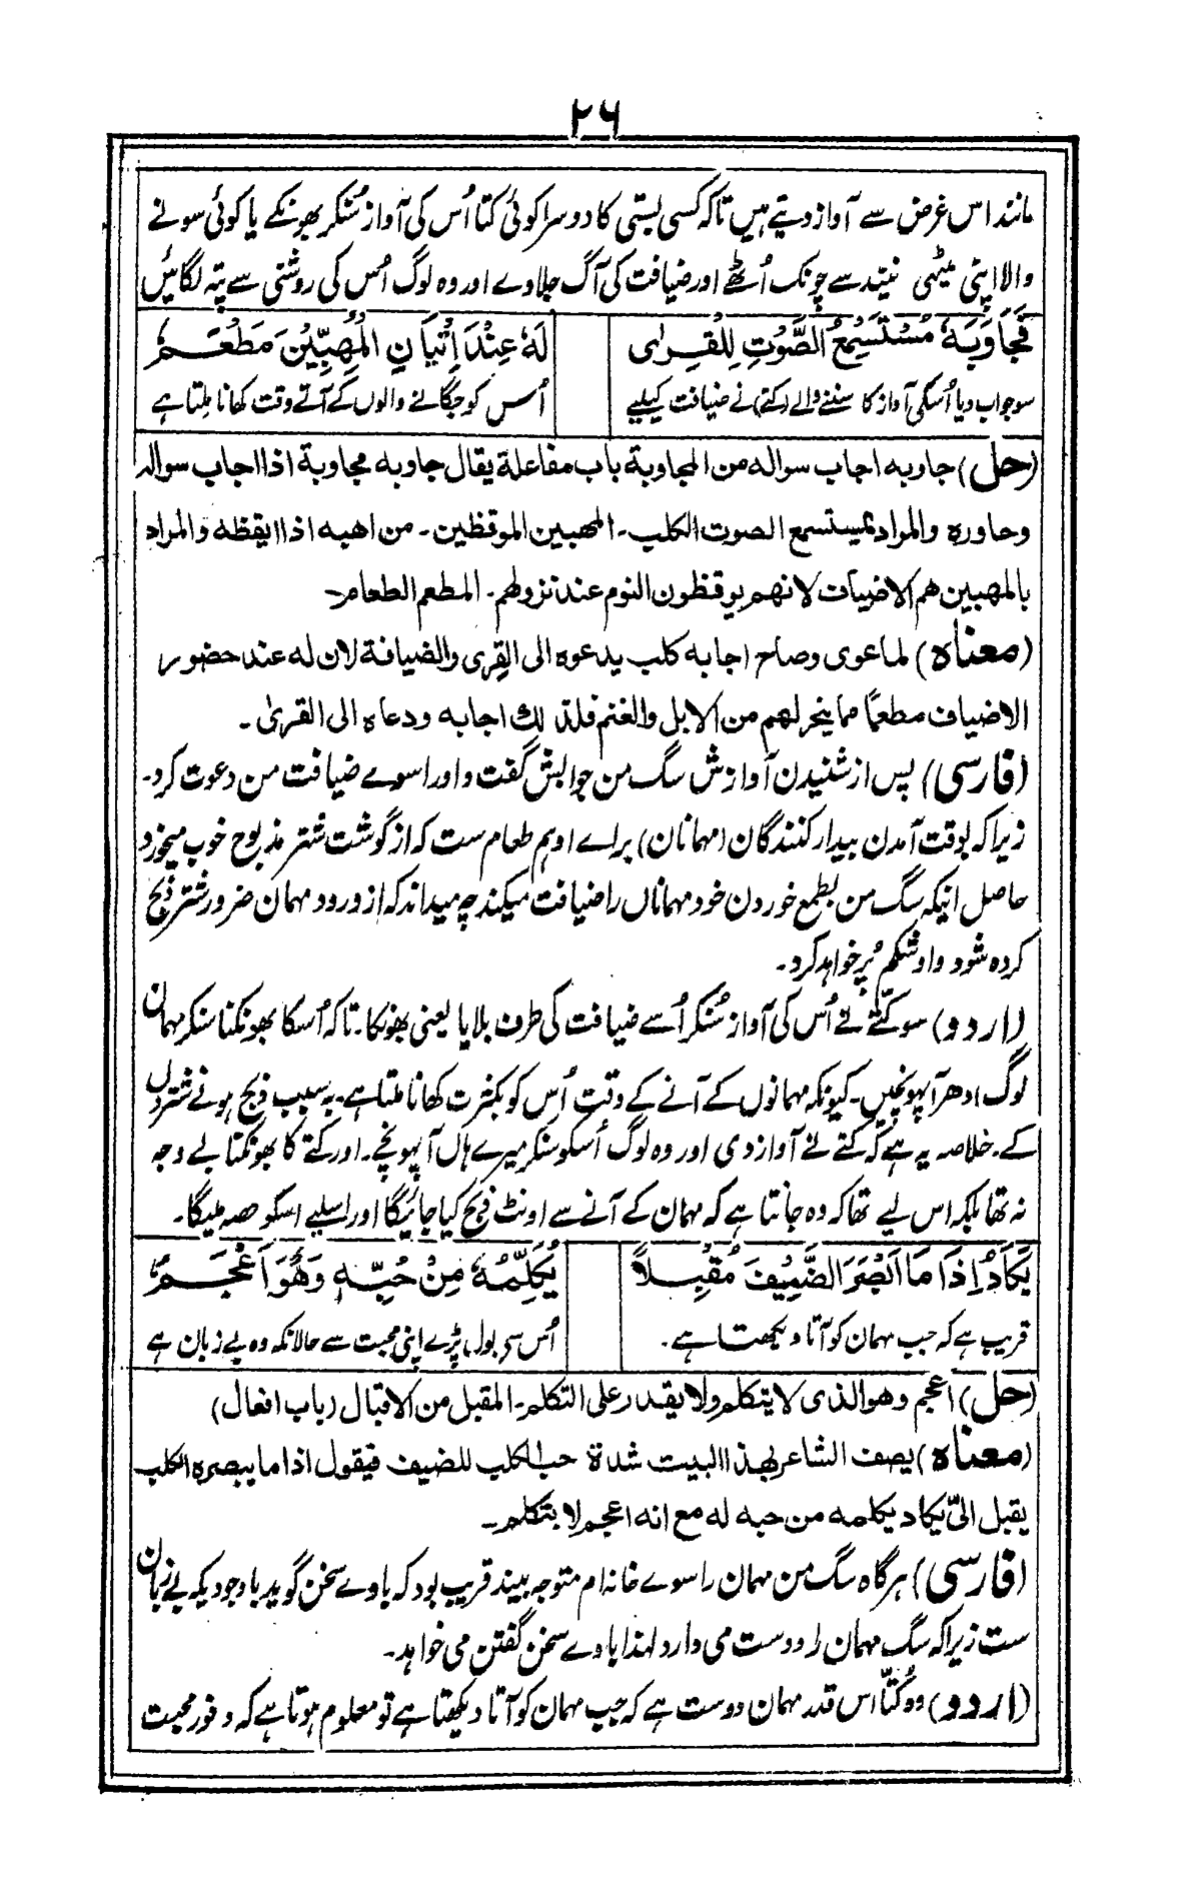 ۲۶
مانند اس غرض سے آواز دیتے ہیں تاکہ کسی بستی کا دوسرا کوئی کتا اُس کی آواز سُنکر بھونکے یا کوئی سونے
والا اپنی میٹھی نیند سے چونک اُٹھے اور ضیافت کی آگ جلاوے اور وہ لوگ اُس کی روشنی سے پتہ لگائیں
فَجَاوَبَهٗ مُسْتَسْمِعُ الصَّوْتِ لِلْقِرٰی
لَهٗ عِنْدَ اِتْیَانِ الْمُهِبِّیْنَ مَطْعَمٌ
سو جواب دیا اُسکی آواز کا سننے والے (کتے) نے ضیافت کیلیے
اُس کو جگانے والوں کے آتے وقت کھانا ملتا ہے
(حل) جاوبه اجاب سواله من المجاوبة باب مفاعلة یقال جاوبه مجاوبة اذا اجاب سواله
وحاوره والمراد بمستسمع الصوت الکلب۔ المهبین الموقظین۔ من اهبه اذا ایقظه والمراد
بالمهبین هم الاضیاف لانهم یوقظون النوم عند نزولهم۔ المطعم الطعام۔
(معناه) لما عوی وصاح اجابه کلب یدعوه الی القِری والضیافة لان له عند حضور
الاضیاف مطعمًا مما ینحر لهم من الابل والغنم فلذلك اجابه ودعاه الی القریٰ۔
(فارسی) پس از شنیدن آوازش سگ من جوابش گفت و اورا سوے ضیافت من دعوت کرد۔
زیراکہ بوقت آمدن بیدار کنندگان (مہمانان) براے او ہم طعام ست کہ از گوشت شتر مذبوح خوب میخورد
حاصل اینکہ سگ من بطمع خوردن خود مہماناں را ضیافت میکند چہ میداند کہ از ورود مہمان ضرور شتر ذبح
کردہ شود و او شکم پُر خواہد کرد۔
(اردو) سو کتّے نے اُس کی آواز سُنکر اُسے ضیافت کی طرف بلایا یعنی بھونکا۔ تاکہ اُسکا بھونکنا سنکر مہمان
لوگ ادھر آپہونچیں۔ کیونکہ مہمانوں کے آنے کے وقت اُس کو بکثرت کھانا ملتا ہے۔ بہ سبب ذبح ہونے شتروں
کے۔ خلاصہ یہ ہے کہ کتے نے آواز دی اور وہ لوگ اُسکو سنکر میرے ہاں آپہونچے۔ اور کتے کا بھونکنا بے وجہ
نہ تھا بلکہ اس لیے تھا کہ وہ جانتا ہے کہ مہمان کے آنے سے اونٹ ذبح کیا جائیگا اور اسلیے اسکو حصہ ملیگا۔
یَکَادُ اِذَا مَا اَبْصَرَ الضَّیْفَ مُقْبِلاً
یُکَلِّمُهٗ مِنْ حُبِّهٖ وَهُوَ اَعْجَمُ
قریب ہے کہ جب مہمان کو آتا دیکھتا ہے۔
اُس سے بول پڑے اپنی محبت سے حالانکہ وہ بے زبان ہے
(حل) اعجم وهو الذی لا یتکلم ولا یقدر علی التکلم۔ المقبل من الاقبال (باب افعال)
(معناه) یصف الشاعر بهذا البیت شدة حب الکلب للضیف فیقول اذا ما یبصره الکلب
یقبل الیّ یکاد یکلمه من حبه له مع انه اعجم لا یتکلم۔
(فارسی) ہرگاہ سگ من مہمان را سوے خانہ ام متوجہ بیند قریب بود کہ باوے سخن گوید باوجودیکہ بے زبان
ست زیراکہ سگ مہمان را دوست می دارد لہذا باوے سخن گفتن می خواہد۔
(اردو) وہ کُتّا اس قدر مہمان دوست ہے کہ جب مہمان کو آتا دیکھتا ہے تو معلوم ہوتا ہے کہ وفور محبت